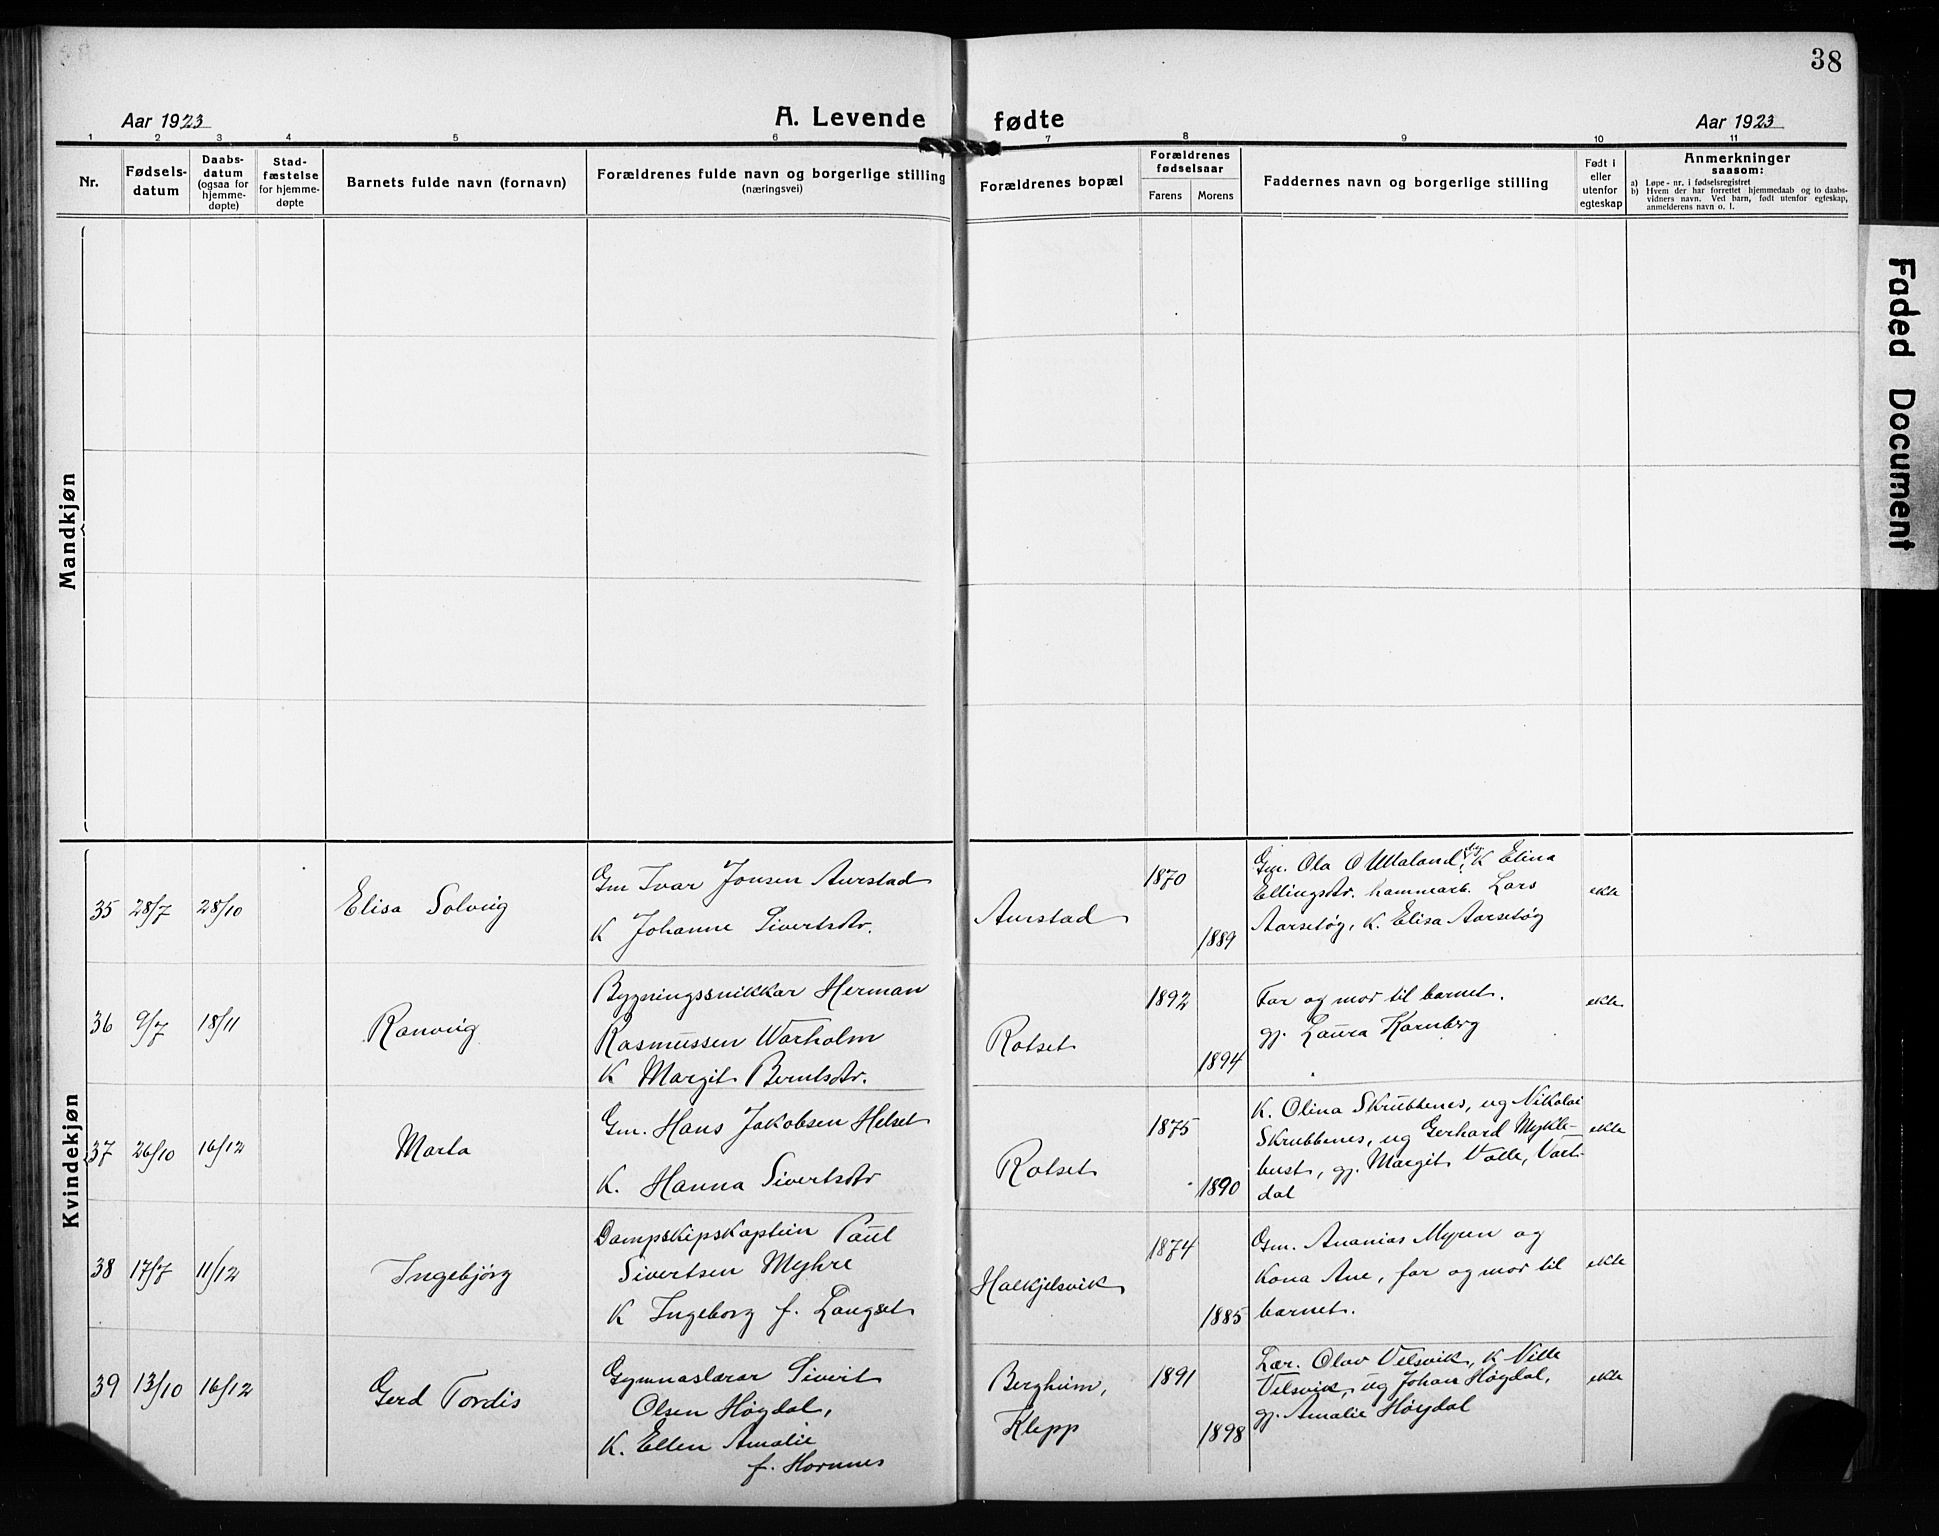 38
Aar 1923
A. Levende fødte
Aar 1923
1 2 3 4 5 6 7 8 9 10 11
Nr.
Fødsels-
datum
Daabs-
datum
(ogsaa for
hjemme-
døpte)
Stad-
fæstelse
for hjemme-
døpte
Barnets fulde navn (fornavn)
Forældrenes fulde navn og borgerlige stilling
(næringsvei)
Forældrenes bopæl
Forældrenes
fødselsaar
Farens Morens
Faddernes navn og borgerlige stilling
Født i
eller
utenfor
egteskap
Anmerkninger
saasom:
a) Løpe-nr. i fødselsregistret
b) Hvem der har forrettet hjemmedaab og to daabs-
vidners navn. Ved barn, født utenfor egteskap,
anmelderens navn o. l.
Mandkjøn
Kvindekjøn
35 28/7 28/10
Elisa Solveig
Gm Ivar Jonsen Aurstad
K Johanne Sivertsdtr.
Aurstad
1870
1889
Gm. Ola O K Elina
Ellingsdtr. hammarb. Lars
Aarsetøg, K. Elisa Aarsetøg
ekte
36 9/7 18/11
Ranveig
Bygningssnikkar Herman
Rasmussen Warholm
K Margit Berntsdtr.
Rotset
1892
1894
Far og mor til barnet.
gj. Laura Kornberg
ekte
37 26/10 16/12
Marta
Gm. Hans Jakobsen Helset
K. Hanna Sivertsdtr
Rotset
1875
1890
K. Olina Skrubbenes, ug Nikolai
Skrubbenes, ug Gerhard Mykle-
bust, gj. Margit Valle, Vart-
dal
ekte
38 17/7 11/12
Ingebjørg
Dampskipskaptein Paul
Sivertsen Myhre
K Ingeborg f. Langset
Halkjelsvik
1874
1885
Gm. Ananias Myren og
Kona Ane, far og mor til
barnet.
ekte
39 13/10 16/12
Gerd Tordis
Gymnaslærar Sivert
Olsen Høydal,
K. Ellen Amalie
f. Hornnes
Berghüm,
Klepp
1891
1898
Lær. Olav Velsvik, K Ville
Velsvik, ug Johan Høydal,
gj. Amalie Høydal
ekte
Faded Document